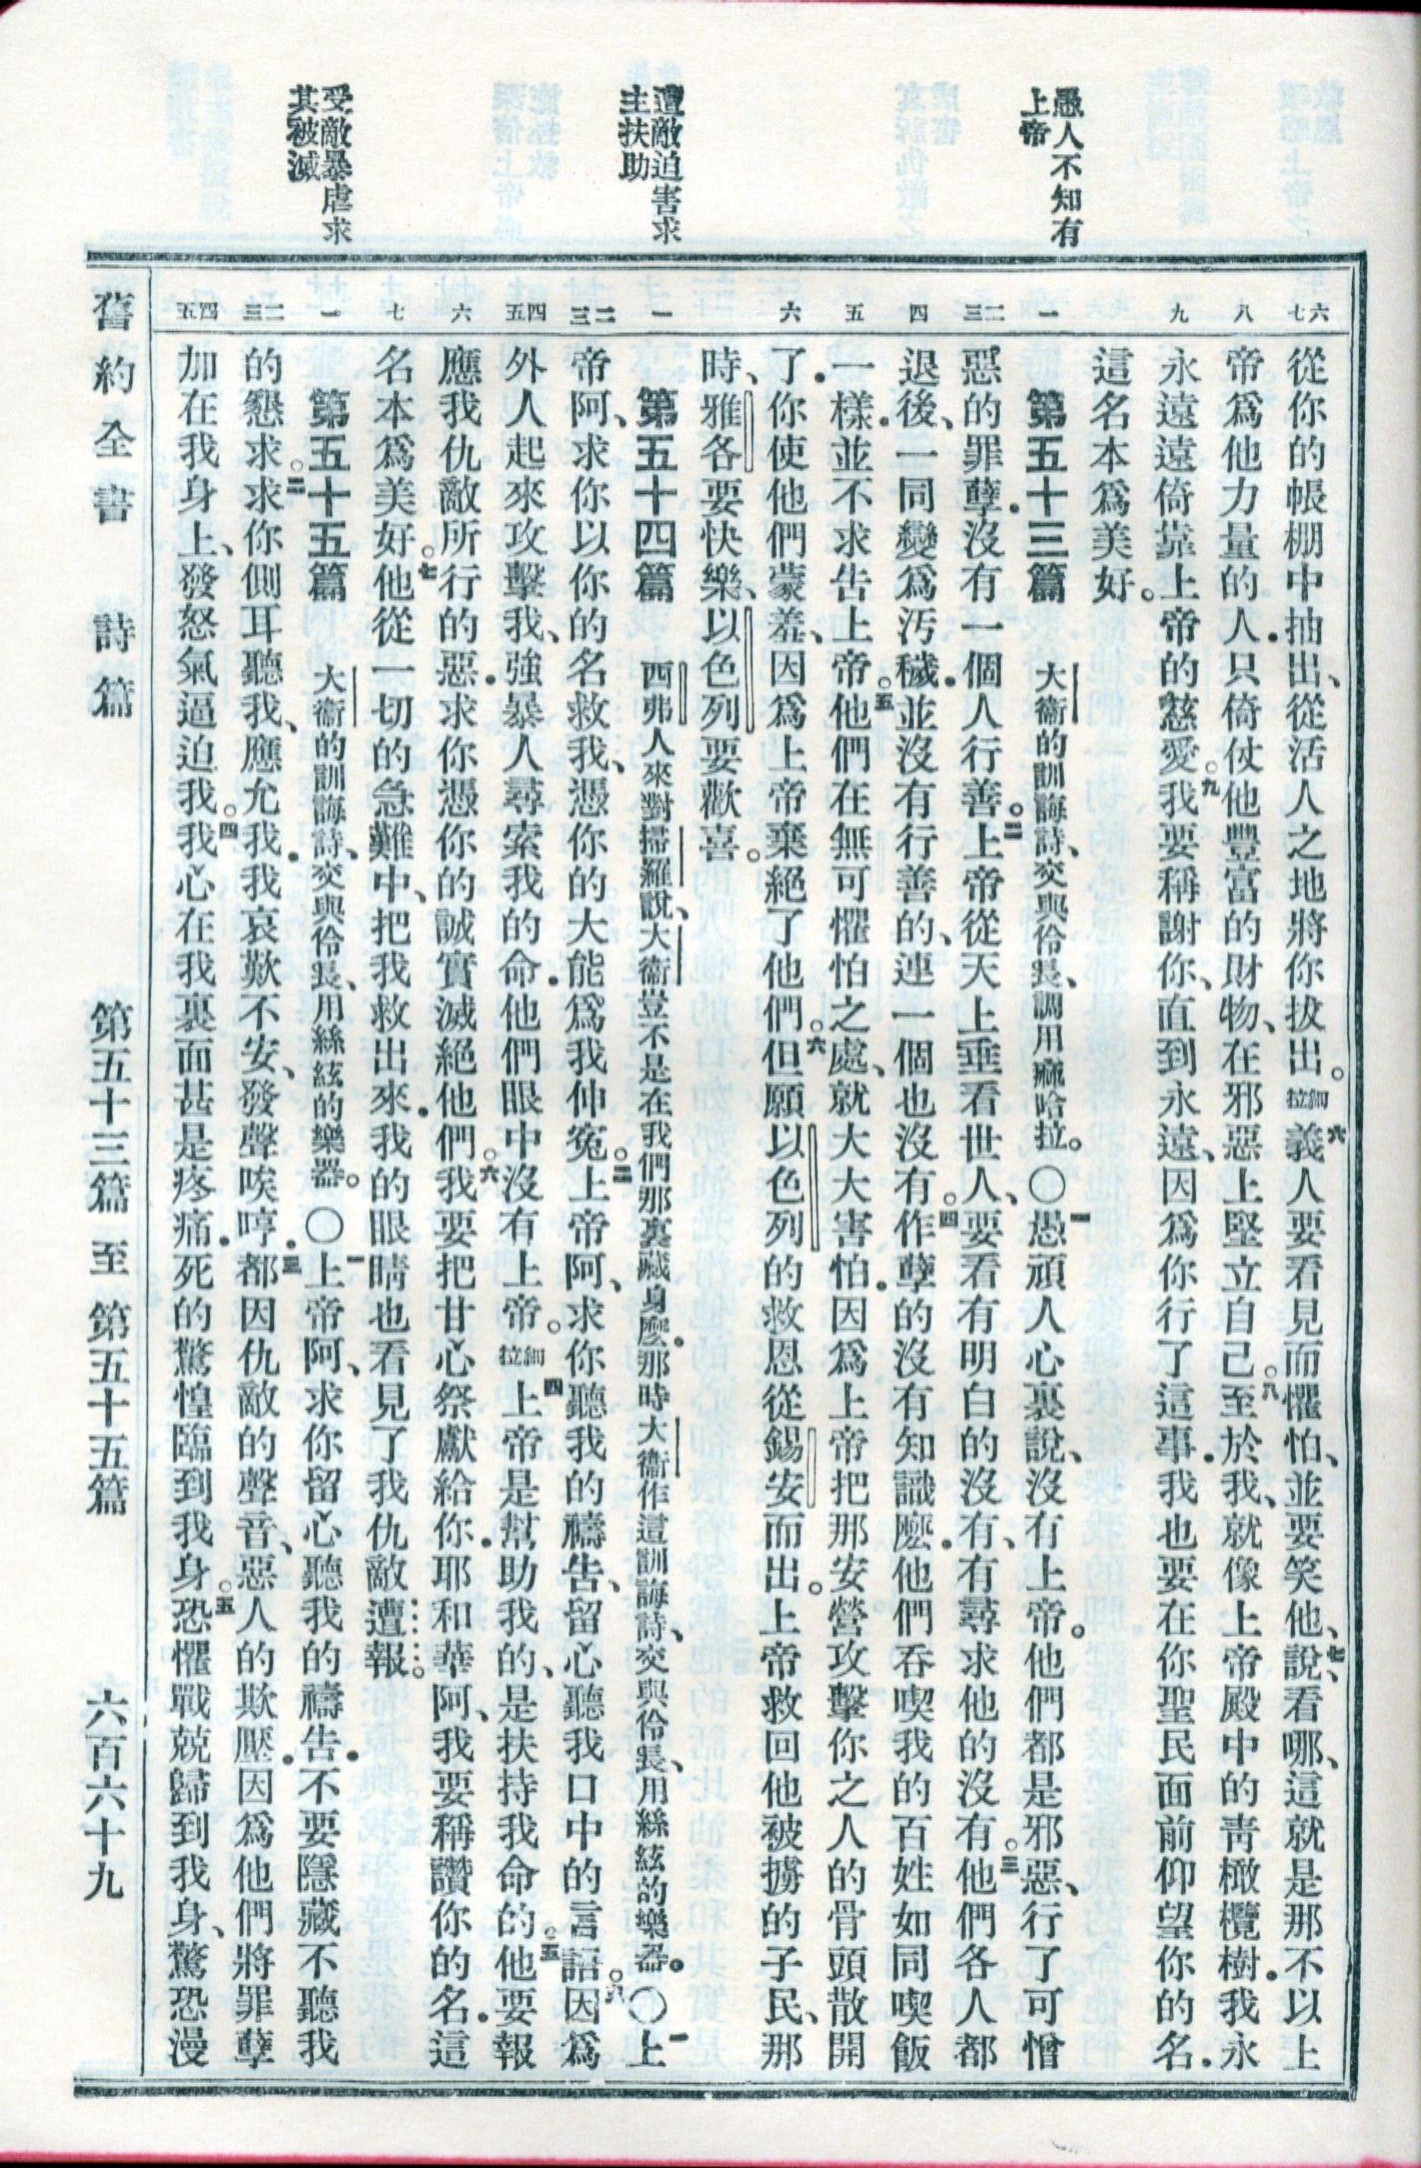 愚人不知有
上帝
遭敵迫害求
主扶助
受敵暴虐求
其被滅
六七
從你的帳棚中抽出、從活人之地將你拔出。細拉六義人要看見而懼怕、並要笑他、七說、看哪、這就是那不以上
八
帝爲他力量的人．只倚仗他豐富的財物、在邪惡上堅立自己。八至於我、就像上帝殿中的靑橄欖樹．我永
九
永遠遠倚靠上帝的慈愛。九我要稱謝你、直到永遠、因爲你行了這事．我也要在你聖民面前仰望你的名．
這名本爲美好。
一
第五十三篇 大衞的訓誨詩、交與伶長、調用痲哈拉。〇一愚頑人心裏說、沒有上帝。他們都是邪惡、行了可憎
二三
惡的罪孽．沒有一個人行善。二上帝從天上垂看世人、要看有明白的沒有、有尋求他的沒有。三他們各人都
四
退後、一同變爲汚穢．並沒有行善的、連一個也沒有。四作孽的沒有知識麽．他們吞喫我的百姓如同喫飯
五
一樣．並不求告上帝。五他們在無可懼怕之處、就大大害怕．因爲上帝把那安營攻擊你之人的骨頭散開
六
了．你使他們蒙羞、因爲上帝棄絕了他們。六但願以色列的救恩從錫安而出。上帝救回他被擄的子民、那
時、雅各要快樂、以色列要歡喜。
一
第五十四篇 西弗人來對掃羅說、大衞豈不是在我們那裏藏身麽．那時大衞作這訓誨詩、交與伶長、用絲絃的樂器。〇一上
二三
帝阿、求你以你的名救我、憑你的大能爲我伸寃。二上帝阿、求你聽我的禱告、留心聽我口中的言語。三因爲
四五
外人起來攻擊我、強暴人尋索我的命．他們眼中沒有上帝。細拉四上帝是幫助我的、是扶持我命的。五他要報
六
應我仇敵所行的惡．求你憑你的誠實滅絕他們。六我要把甘心祭獻給你．耶和華阿、我要稱讚你的名．這
七
名本爲美好。七他從一切的急難中、把我救出來．我的眼睛也看見了我仇敵遭報。
一
第五十五篇 大衞的訓誨詩、交與伶長、用絲絃的樂器。〇一上帝阿、求你留心聽我的禱告．不要隱藏不聽我
二三
的懇求。二求你側耳聽我、應允我．我哀歎不安、發聲唉哼．三都因仇敵的聲音、惡人的欺壓．因爲他們將罪孽
四五
加在我身上、發怒氣逼迫我。四我心在我裏面甚是疼痛．死的驚惶臨到我身。五恐懼戰兢歸到我身、驚恐漫
舊約全書 詩篇 第五十三篇 至 第五十五篇 六百六十九